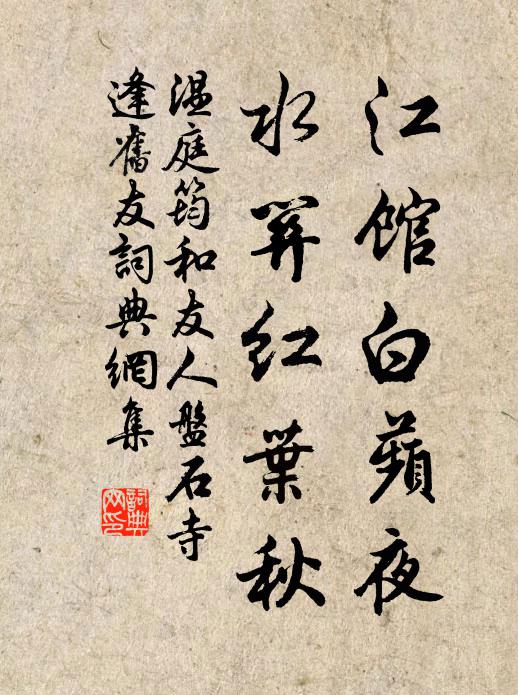 江館白蘋夜
水關紅葉秋
溫庭筠和友人盤石寺
逢舊友詞典網集
詞典
网印